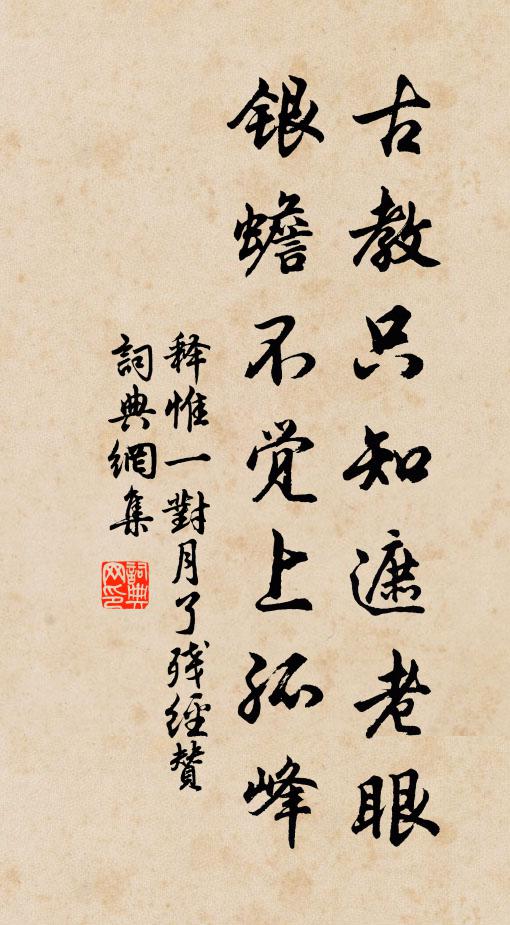 古教只知遮老眼
银蟾不觉上孤峰
释惟一對月了残經贊
詞典網集
詞典网印